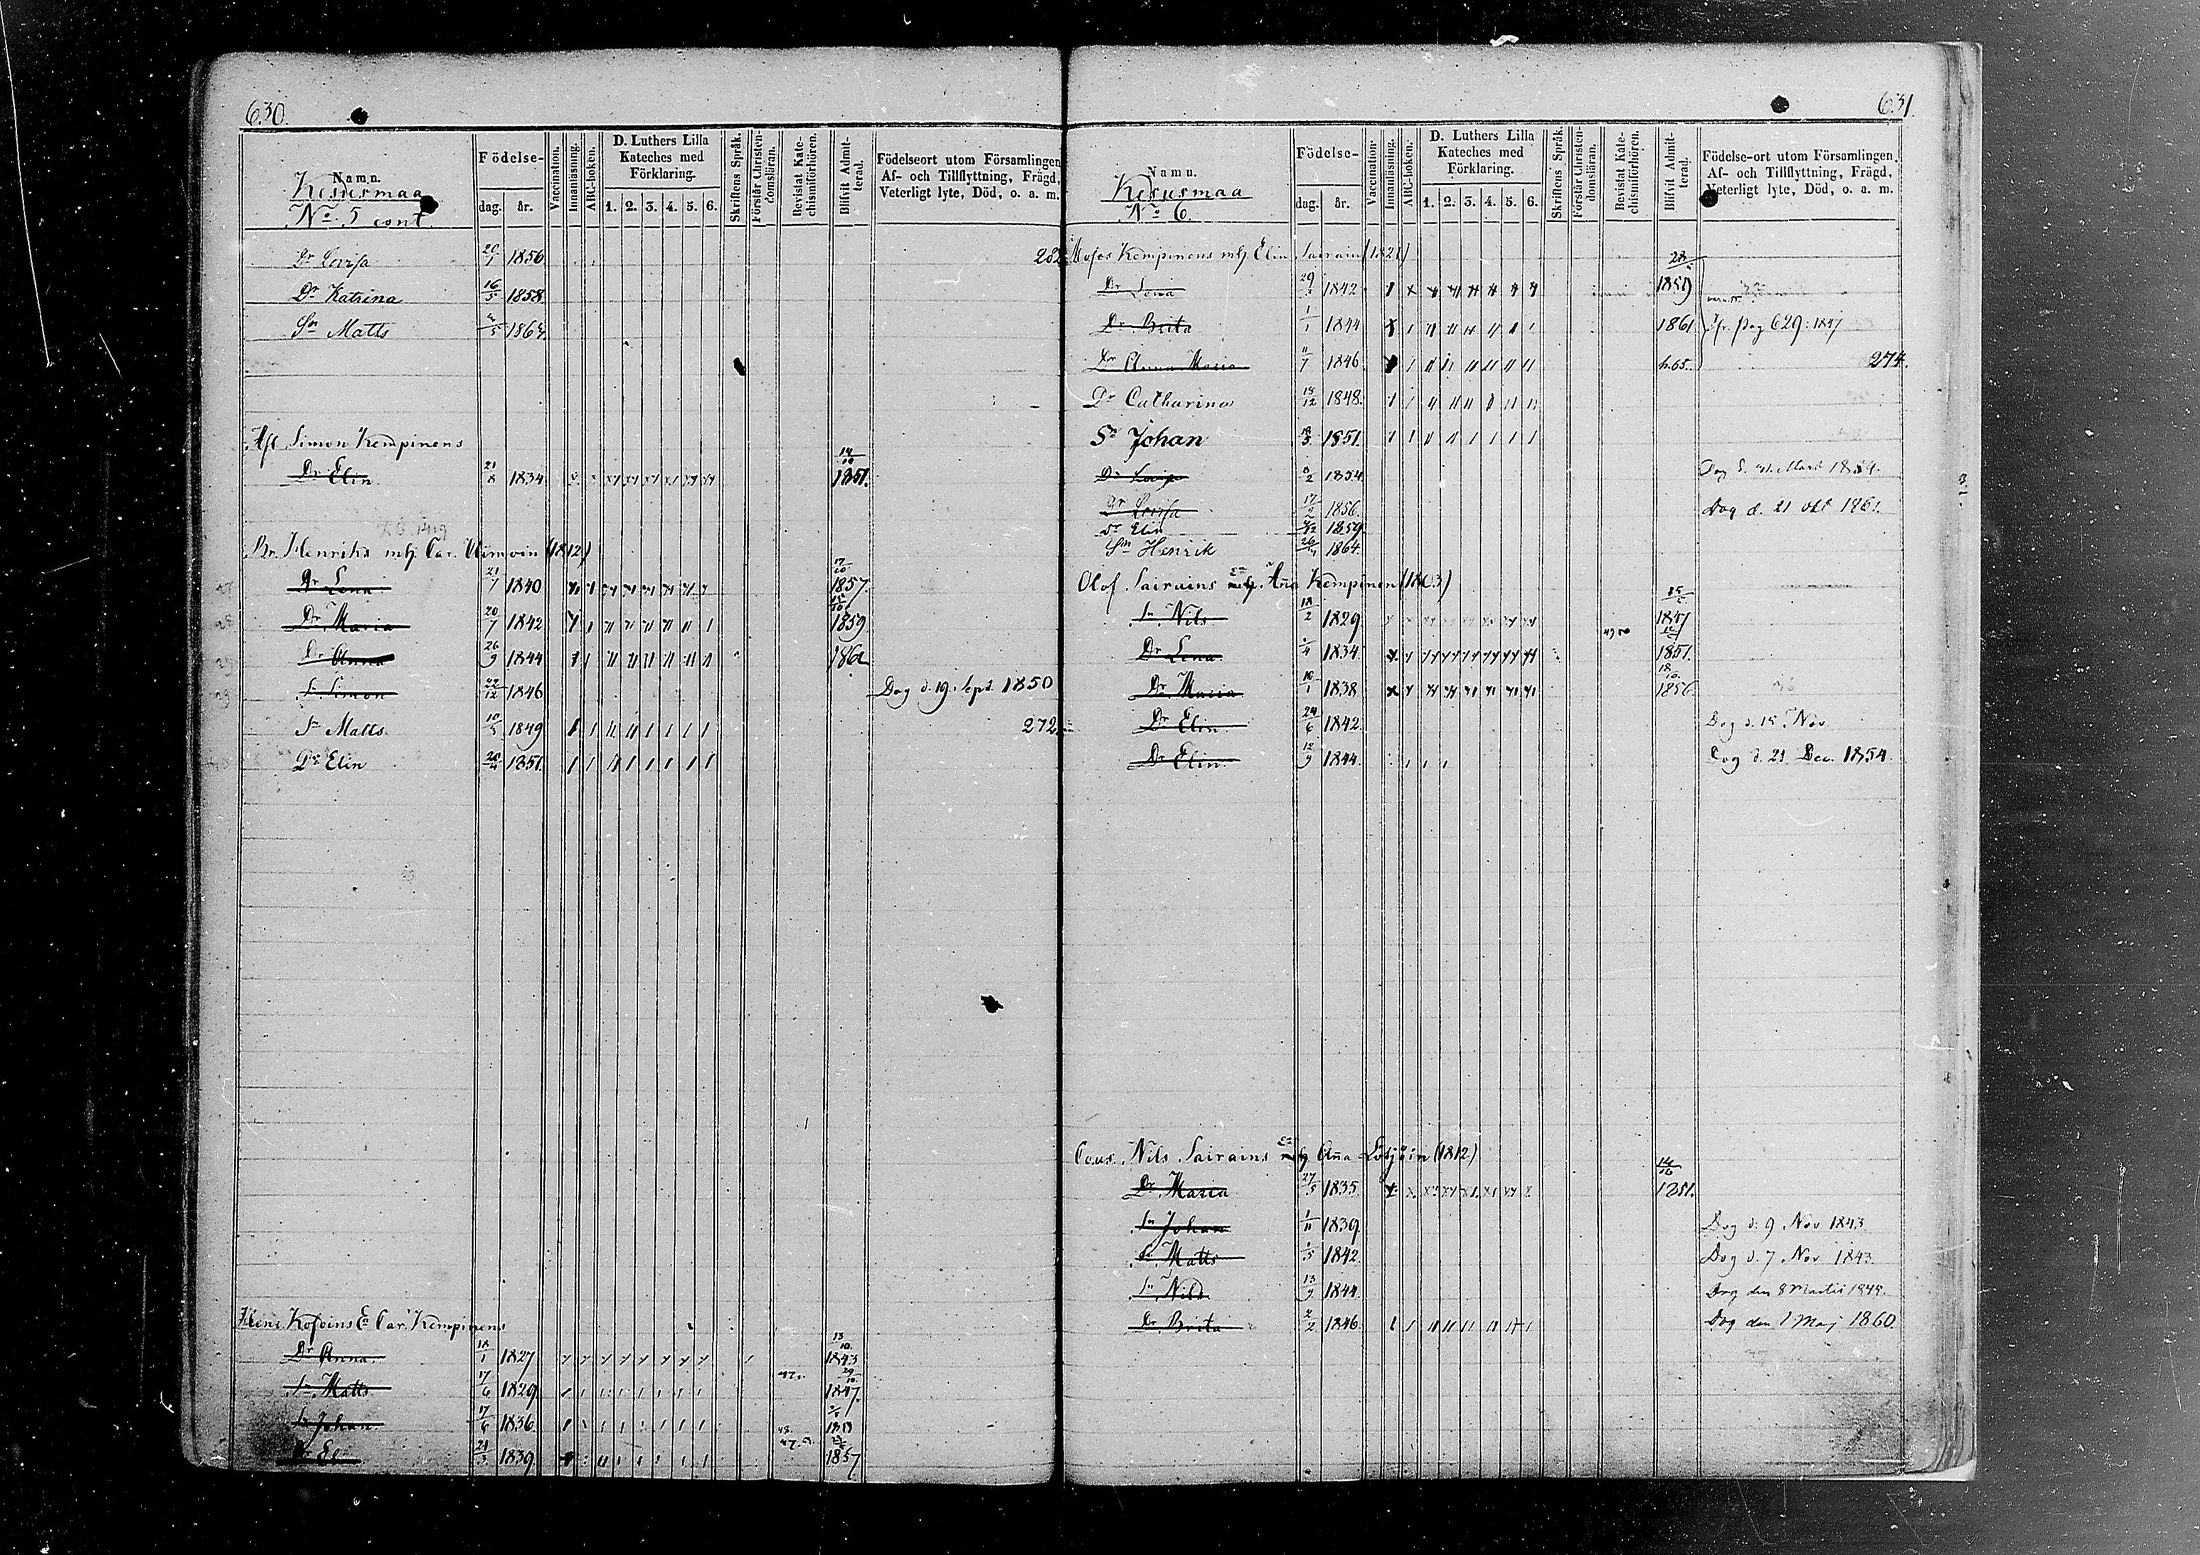 630.
Namn. Födelse- dag. år. Vaccination. Innanläsning. ABC-boken. D. Luthers Lilla Kateches med Förklaring. 1. 2. 3. 4. 5. 6. Skriftens Språk. Förstår Christendomsläran. Bevistat Katechismiförhören. Blifvit Admitterad. Födelseort utom Församlingen, Af- och Tillflyttning, Frägd, Veterligt lyte, Död, o. a. m.
Kesusmaa
No. 5 cont.
Dr Lovisa 1856 282
Dr Katrina 16/5 1858
Sn Matts 1864
Afl. Simon Kempinens
Dr Elin 21/8 1834 1851.
Br. Henriks mh. Car. (1812)
Dr Lena 21/7 1840 1857.
Dr Maria 20/7 1842 1859
Dr Anna 26/9 1844
Sn Simon 22/12 1846 Dog d. 19. Sept. 1850
Sn Matts. 1849 272
Dr Elin 1851
Kempinens
Dr Anna 18/1 1827 1843
Sn Matts 17/6 1829 1847.
Sn Johan 17/6 1836
1839 1857
631
Namn. Födelse- dag. år. Vaccination. Innanläsning. ABC-boken. D. Luthers Lilla Kateches med Förklaring. 1. 2. 3. 4. 5. 6. Skriftens Språk. Förstår Christendomsläran. Bevistat Katechismiförhören. Blifvit Admitterad. Födelse-ort utom Församlingen, Af- och Tillflyttning, Frägd, Veterligt lyte, Död, o. a. m.
Kesusmaa
No. 6.
Kempinens mh. Elin Sairain (1821)
Dr Lena 1842 1859
Dr Brita 1/1 1844 1861 pag 629: 1847
Dr Anna Maria 11/7 1846 h. 65. 274.
Dr Catharina 1848.
Sn Johan 1851
1854
Dr Lovisa 17/2 1856. Dog d. 21 Okt 1861.
Dr Elin 1859
Sn Henrik 1864
Olof Sairains Aña Kempinen (1803)
Sn Nils 18/2 1829 1847
Dr Lena 1834 1851.
Dr Maria 10/1 1838 18/10. 1856.
Dr Elin 24/6 1842. Dog d. 15. Nov
Dr Elin. 12/9 1844. Dog d. 21 Dec. 1854.
Nils Sairains Aña (1812)
Dr Maria 27/5 1835 14/10 1851.
Sn Johan 1/11 1839 Dog d: 9 Nov 1843.
Sn Matts 1842. Dog d. 7 Nov 1843
Sn Nils 13/9 1844
Dr Brita 2/2 1846 Dog den 1 Maj 1860.